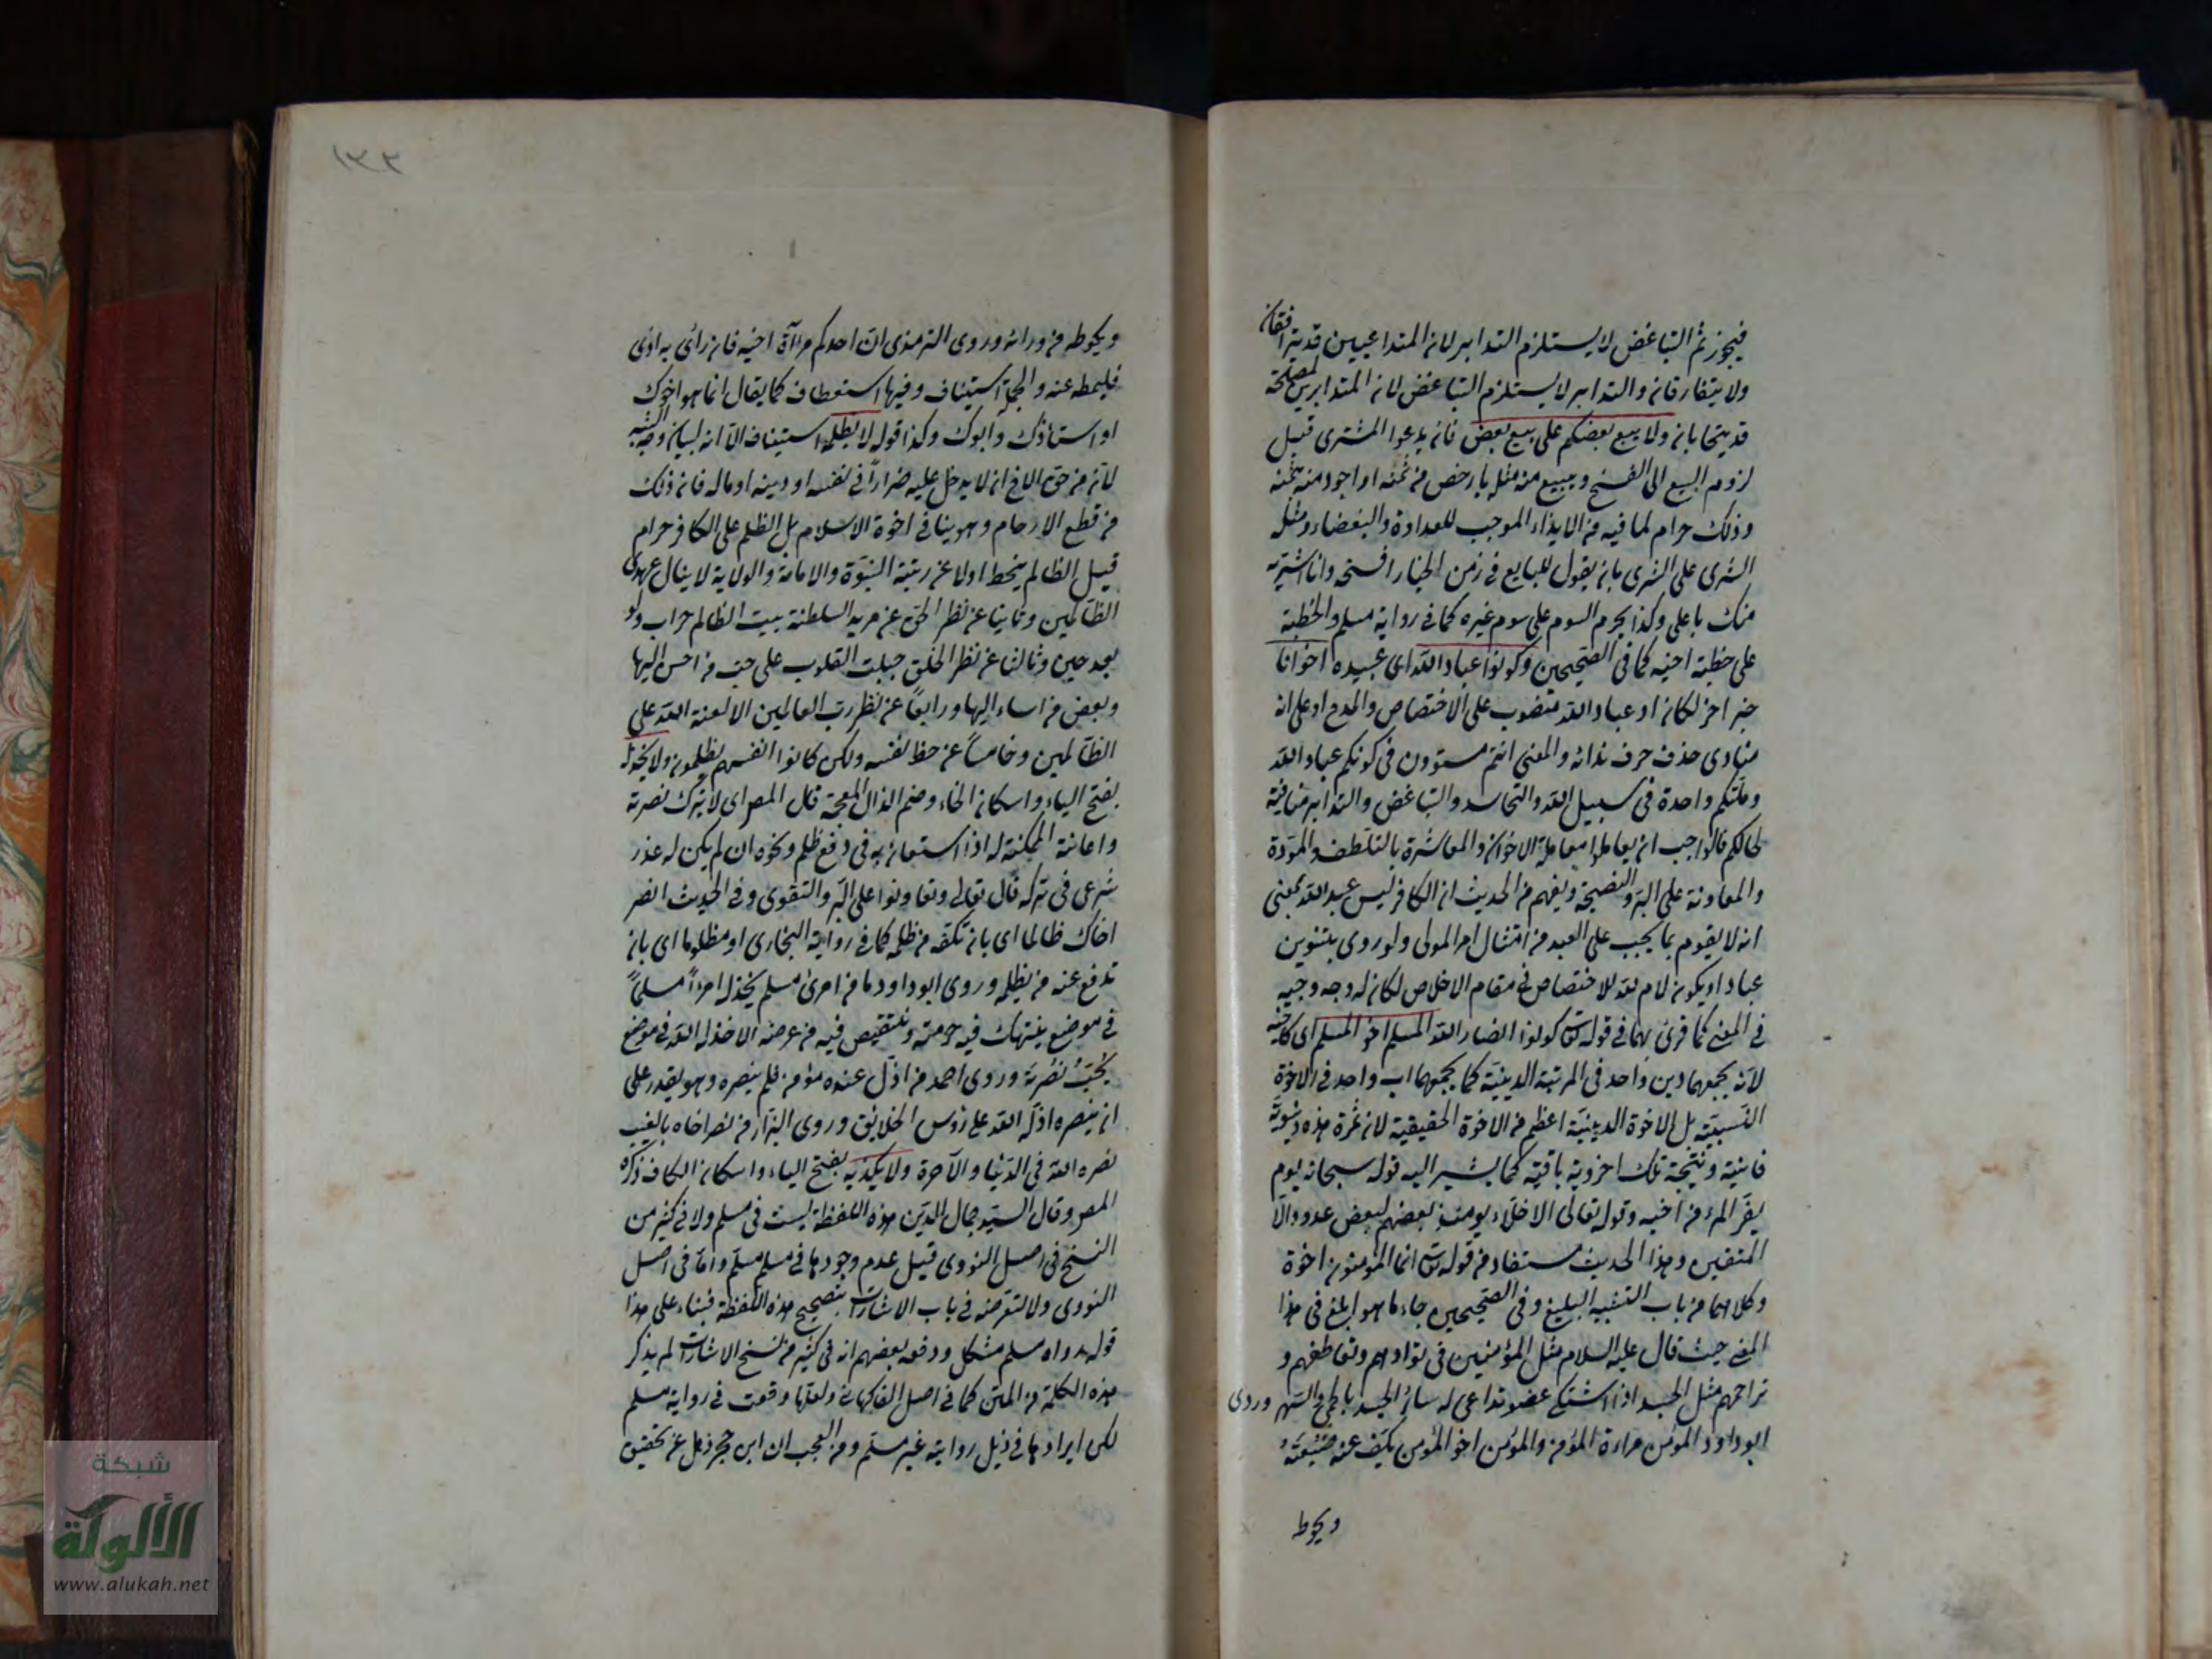 فيجوز ثم التباغض لا يستلزم التدابر لان المتداعيين قد يترافقان
ولا يتفارقان والتدابر لا يستلزم التباغض لان المتدابرين لمصلحة
قد يتحابان ولا يبع بعضكم على بيع بعض فانه يدعوا المشترى قبيل
لزوم البيع الى الفسخ ويبيع منه مثله بارخص من ثمنه او اجود منه بثمنه
وذلك حرام لما فيه من الايذاء الموجب للعداوة والبغضاء ومثله
الشرى على الشرى بان يقول للبايع فى زمن الخيار افسخه وانا اشتريه
منك باعلى وكذا يحرم السوم على سوم غيره كما فى رواية مسلم والخطبة
على خطبة اخيه كما فى الصحيحين وكونوا عباد الله اى عبيده اخوانا
خبر اخر لكان او عباد الله منصوب على الاختصاص والمدح او على انه
منادى حذف حرف ندائه والمعنى انتم مستوون فى كونكم عباد الله
وملتكم واحدة فى سبيل الله والتحاسد والتباغض والتدابر منافية
لحالكم فالواجب ان يعاملوا معاملة الاخوان والمعاشرة بالتلطف والمودة
والمعاونة على البر والنصيحة ويفهم من الحديث ان الكافر ليس عبد الله بمعنى
انه لا يقوم بما يجب على العبد من امتثال امر المولى ولو روى بتنوين
عبادا ويكون لام لله للاختصاص فى مقام الاخلاص لكان له وجه وجيه
فى المعنى كما قرئ بهما فى قوله تع كونوا انصار الله المسلم اخو المسلم اى كاخيه
لانه يجمعهما دين واحد فى المرتبة الدينية كما يجمعهما اب واحد فى الاخوة
النسبية بل الاخوة الدينية اعظم من الاخوة الحقيقية لان ثمرة هذه دنيوية
فانية ونتيجة تلك اخروية باقية كما يشير اليه قوله سبحانه يوم
يفر المرء من اخيه وقوله تعالى الاخلاء يومئذ بعضهم لبعض عدو الا
المتقين وهذا الحديث مستفاد من قوله تع انما المؤمنون اخوة
وكلاهما من باب التشبيه البليغ وفى الصحيحين جاء ما هو ابلغ فى هذا
المعنى حيث قال عليه السلام مثل المؤمنين فى توادهم وتعاطفهم و
تراحمهم مثل الجسد اذا اشتكى عضو تداعى له سائر الجسد بالحمى والسهر وروى
ابو داود المؤمن مراءة المؤمن والمؤمن اخو المؤمن يكف عنه ضيعته
ويحوط
١٣٢
ويحوطه من ورائه وروى الترمذى ان احدكم مرآة اخيه فان رأى به اذى
فليمطه عنه والجملة استيناف وفيها استعطاف كما يقال انما هو اخوك
او استاذك وابوك وكذا قوله لا يظلمه استيناف الا انه لبيان وجه الشبه
لان من حق الاخ ان لا يدخل عليه ضرارا فى نفسه او دينه او ماله فان ذلك
من قطع الارحام وهو ينافى اخوة الاسلام بل الظلم على الكافر حرام
قيل الظالم ينحط اولا عن رتبة النبوة والامامة والولاية لا ينال عهدى
الظالمين وثانيا عن نظر الحق عن مريد السلطنة بيت الظالم خراب ولو
بعد حين وثالثا عن نظر الخلق جبلت القلوب على حب من احسن اليها
وبغض من اساء اليها ورابعا عن نظر رب العالمين الا لعنة الله على
الظالمين وخامسا عن حظ نفسه ولكن كانوا انفسهم يظلمون ولا يخذله
بفتح الياء واسكان الخاء وضم الذال المعجمة قال المص اى لا يترك نصرته
واعانته الممكنة له اذا استعان به فى دفع ظلم ونحوه ان لم يكن له عذر
شرعى فى تركه قال تعالى وتعاونوا على البر والتقوى وفى الحديث انصر
اخاك ظالما اى بان تكفه من ظلمه كما فى رواية البخارى او مظلوما اى بان
تدفع عنه من يظلمه وروى ابو داود ما من امرئ مسلم يخذل امرءا مسلما
فى موضع ينتهك فيه حرمته وينتقص فيه من عرضه الا خذله الله فى موضع
يحب نصرته وروى احمد من اذل عنده مؤمن فلم ينصره وهو يقدر على
ان ينصره اذله الله على رؤس الخلايق وروى البزار من نصر اخاه بالغيب
نصره الله فى الدنيا والآخرة ولا يكذبه بفتح الياء واسكان الكاف ذكره
المص وقال السيد جمال الدين هذه اللفظة ليست فى مسلم ولا فى كثير من
النسخ فى اصل النووى قيل عدم وجودها فى مسلم مسلم واما فى اصل
النووى ولا لتعرضه فى باب الاشارات بتصحيح هذه اللفظة فبناء على هذا
قوله رواه مسلم مشكل ودفعه بعضهم انه فى كثير من نسخ الاشارات لم يذكر
هذه الكلمة من المتن كما فى اصل الفاكهانى ولعلها وقعت فى رواية مسلم
لكن ايرادها فى ذيل رواية غير مسلم ومن العجب ان ابن حجر ذهل عن تحقيق
شبكة
الألوكة
www.alukah.net